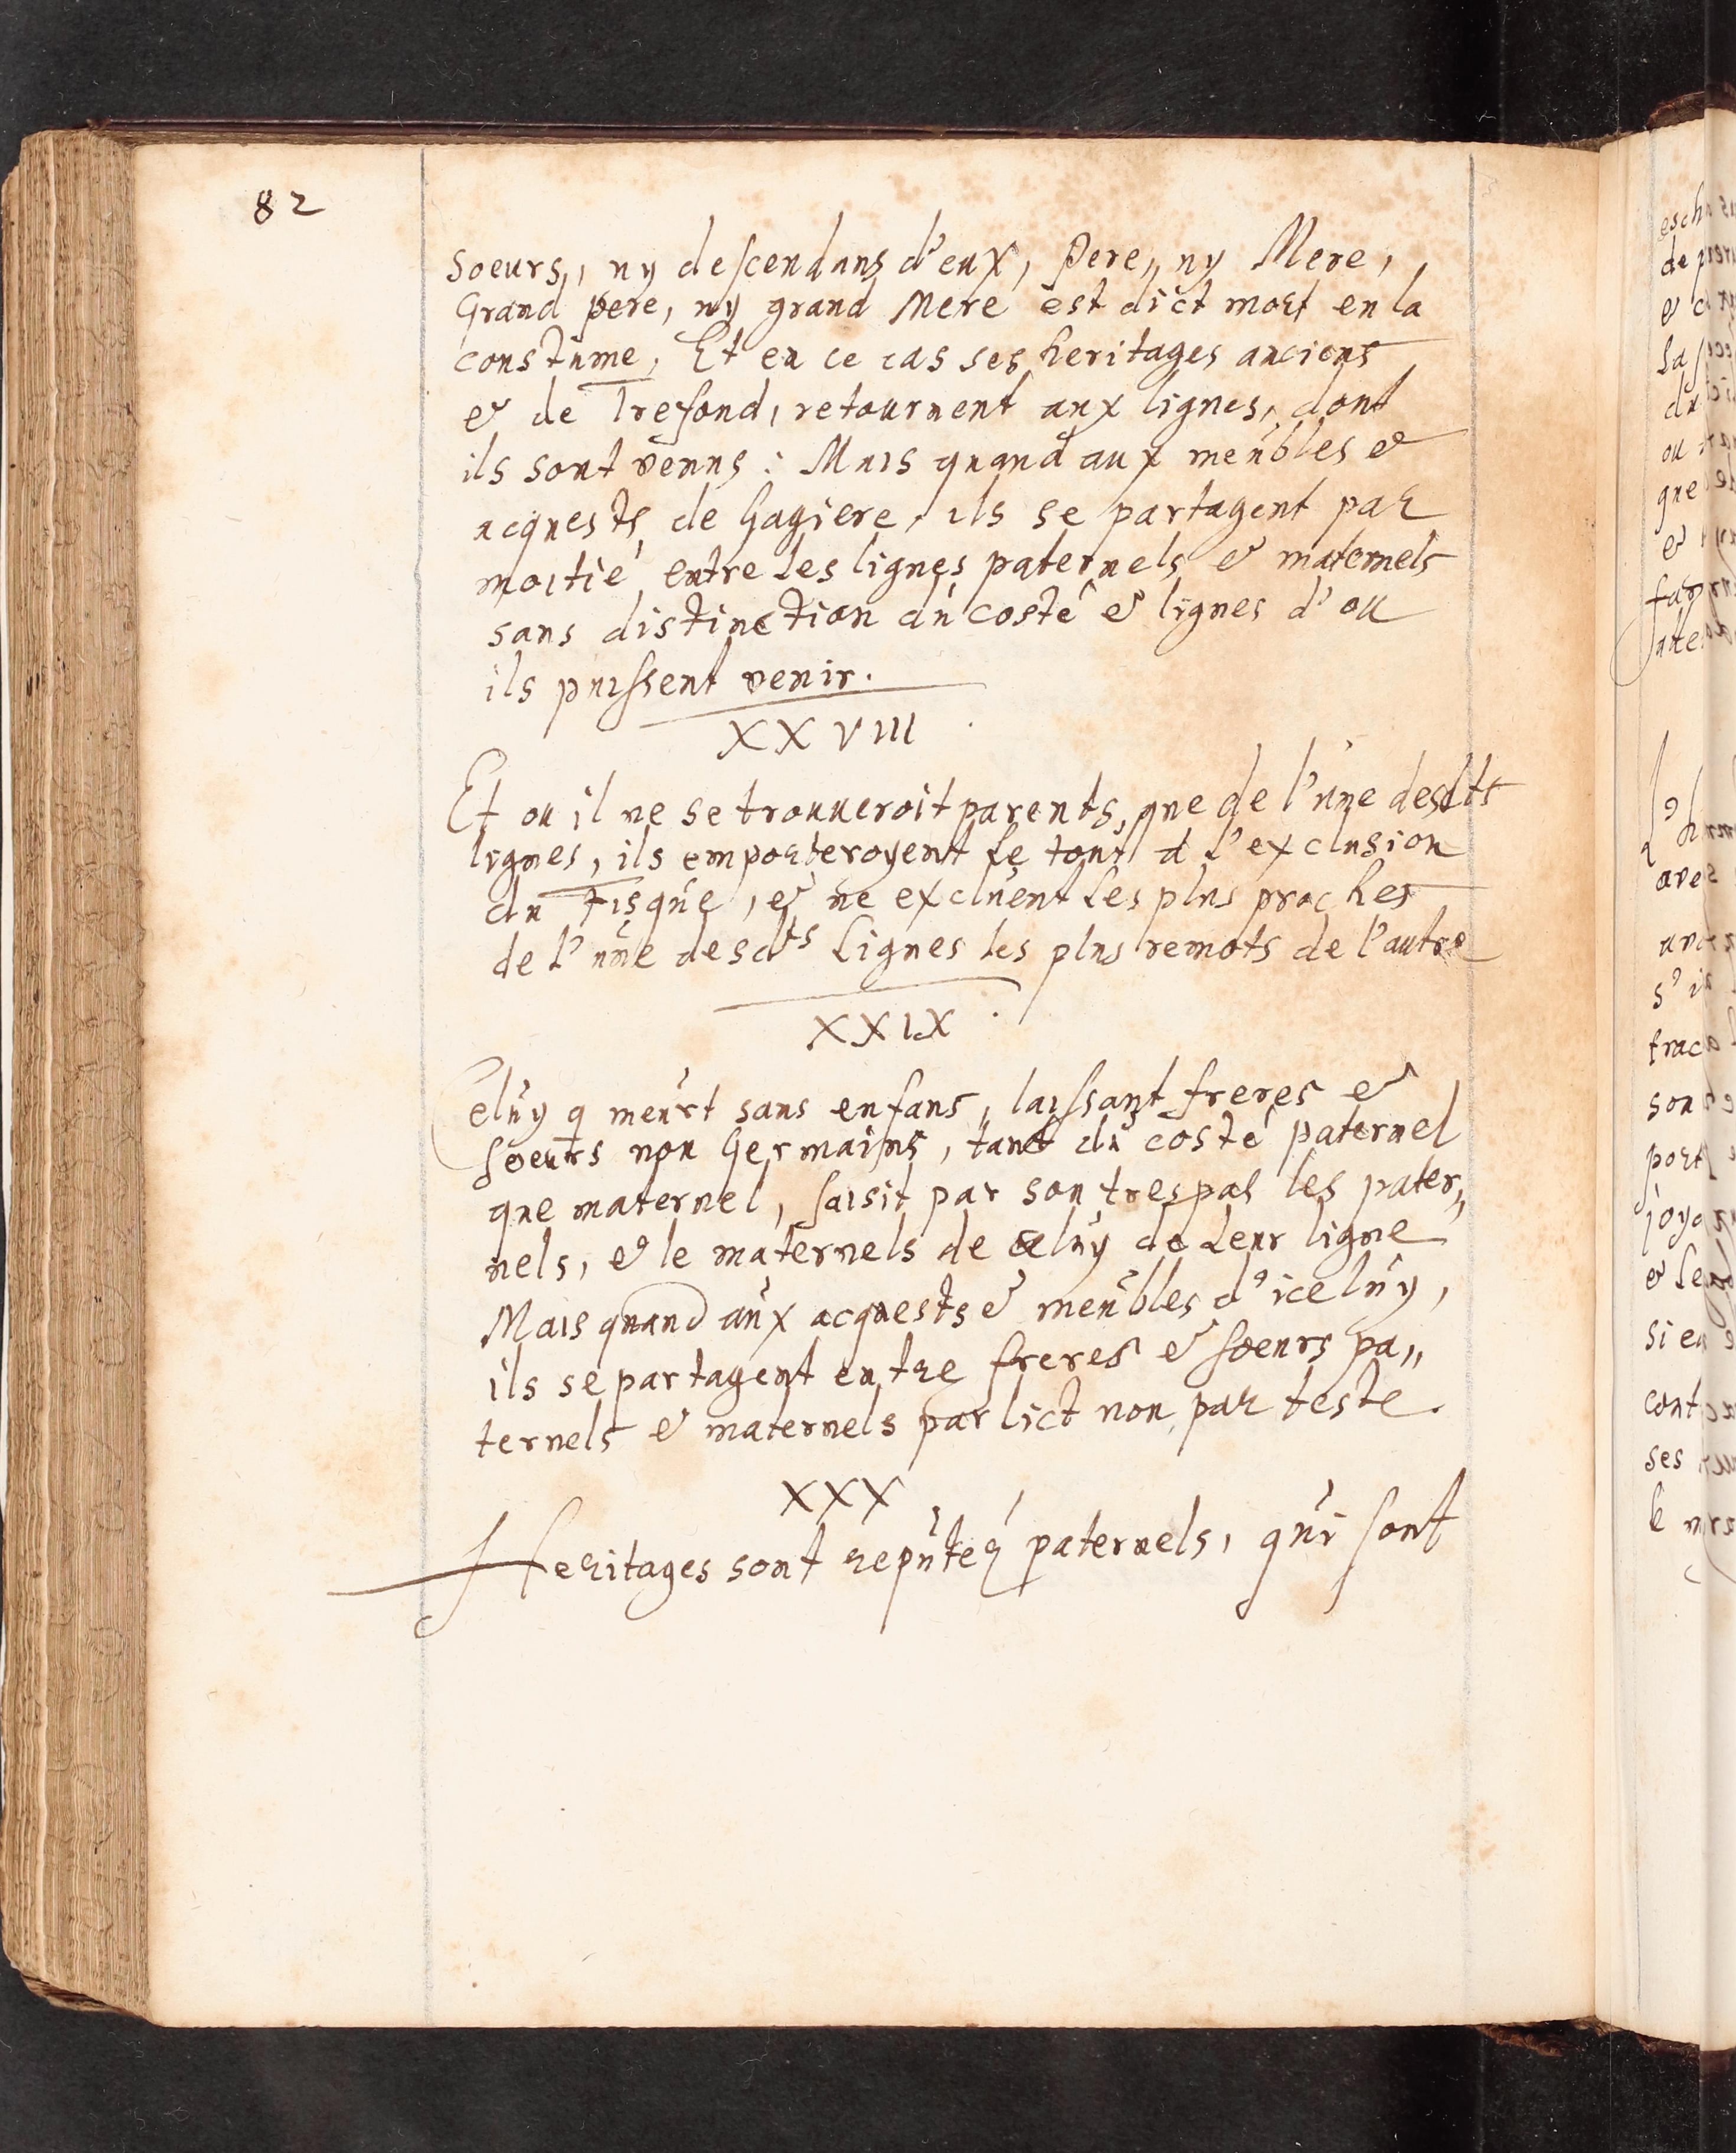 82
soeurs, ny descendans d'eux, Pere, ny Mere,
Grand pere, ny grand Mere est dict mort en la
coustume, Et en ce cas ses heritages anciens
& de Trefond, retournent aux lignes, dont
ils sont venus : Mais quand aux meubles &
acquests de Gagiere, ils se partagent par
moitié entre les lignes paternels & maternels
sans distinction du costé & lignes d'ou
ils puissent venir.
XXVIII
Et ou il ne se trouueroit parents, que de l'une desdts
lignes, ils emporteroyent le tout a l'exclusion
du Fisque, & ne excluent les plus proches
de l'une desdts lignes les plus remots de l'autre
XXIX
Celuy q meurt sans enfans, laissant freres &
soeurs non Germains, tant du costé paternel
que maternel, saisit par son trespas les pater„
nels, & le maternels de celuy de leur ligne
Mais quand aux acquests & meubles d'iceluy,
ils se partagent entre freres & soeurs pa„
ternels & maternels par lict non par teste.
XXX
Heritages sont reputez paternels, qui sont